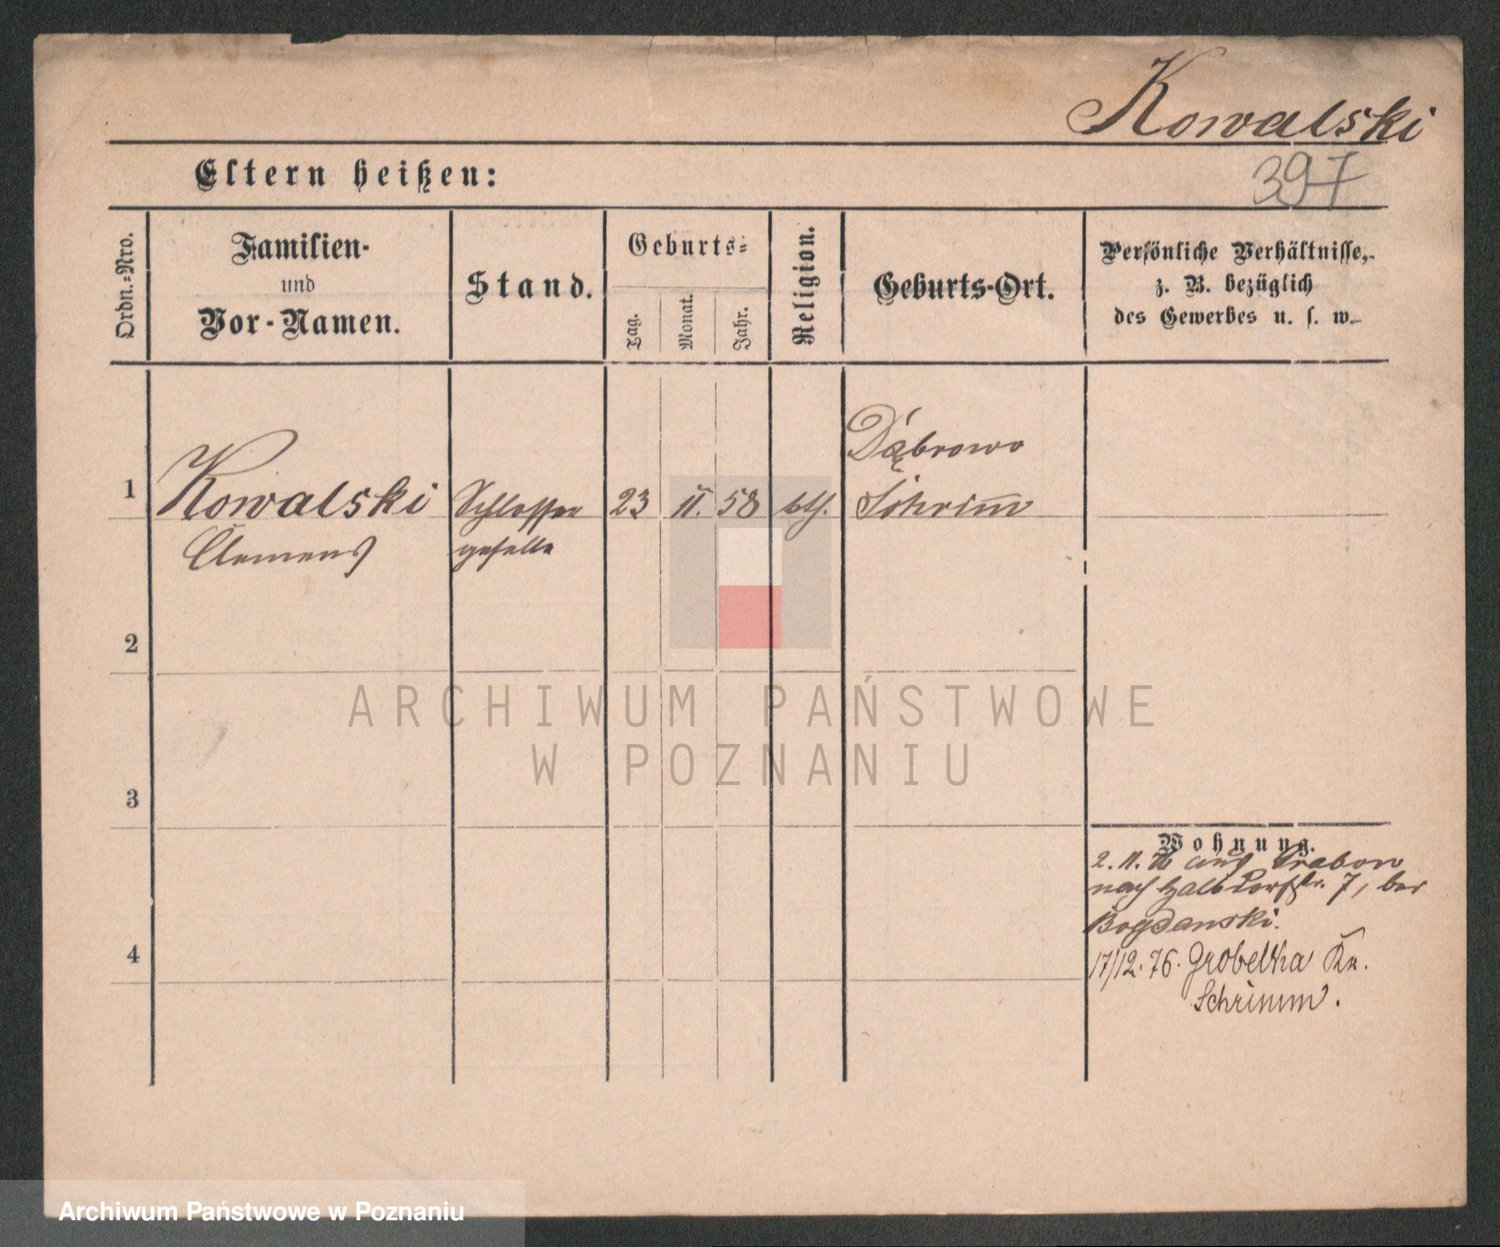 Kowalski
397
Eltern heißen:
Ordn.=Nro.
Familien-
und
Vor-Namen.
Stand.
Geburts=
Tag.
Monat.
Jahr.
Religion.
Geburts-Ort.
Persönliche Verhältnisse,
z. B. bezüglich
des Gewerbes u. s. w.
Dąbrowo
1 Kowalski Schlosser 23 11. 58 kth. Schrim̅
Clemens geselle
2
3
4
ARCHIWUM PAŃSTWOWE
W POZNANIU
Wohnung.
2. 11. 76 aus
nach Halbdorfstr. 7, bei
Bogdanski.
17/12. 76. Grobelka Kr.
Schrimm.
Archiwum Państwowe w Poznaniu